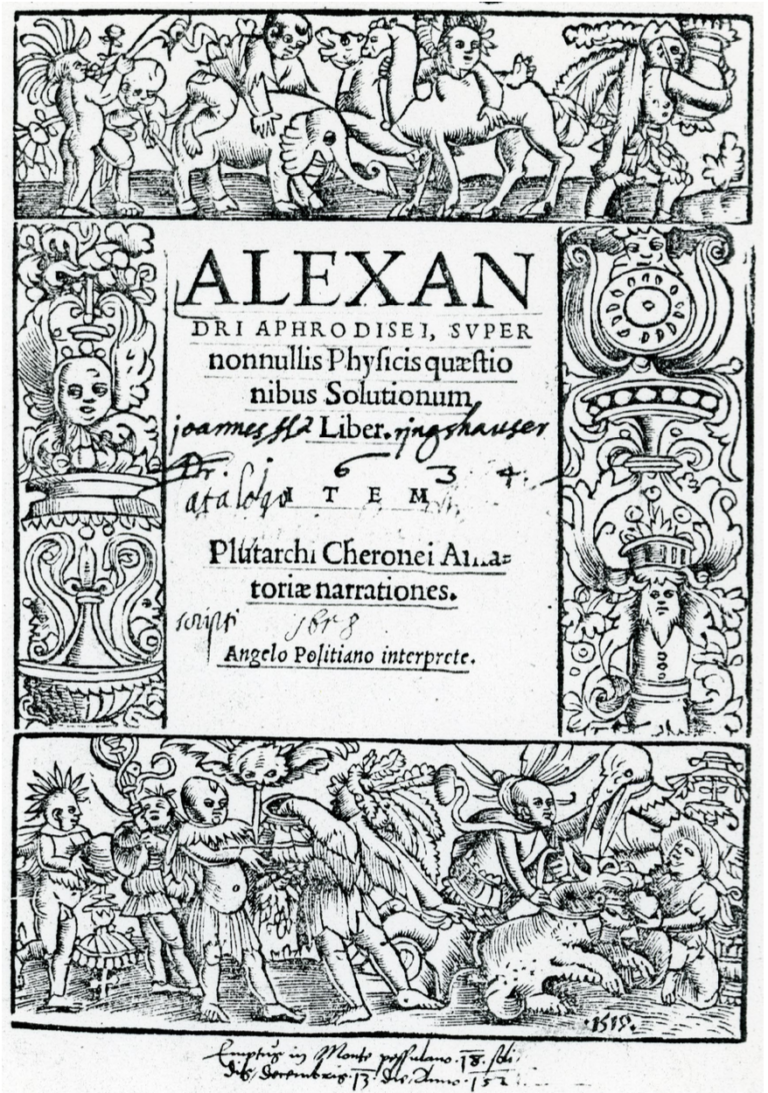 ALEXAN
DRI APHRODISEI, SVPER
nonnullis Physicis quæstio
nibus Solutionum
joannes Liber. ringshauser
Dr. j 6 3 4.
I T E M
Plutarchi Cheronei Ama-
toriæ narrationes.
scripsi
Angelo Politiano interprete.
·1519.
Emptus in Monte pessulano .18. soli
dis, decembris .13. die, Anno .152